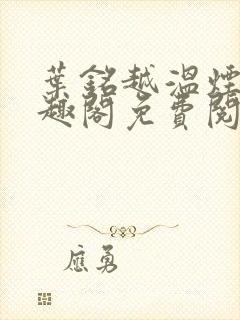 葉銘越溫煙
趣閣免費閱
應勇